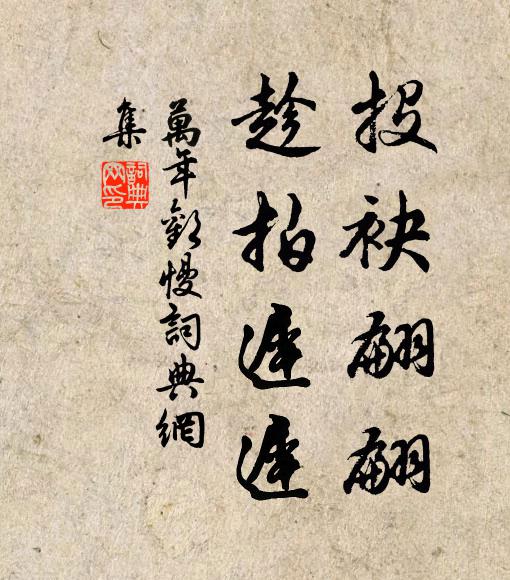 投袂翩翩
趁拍遲遲
萬年歡慢詞典網
集
詞典網印